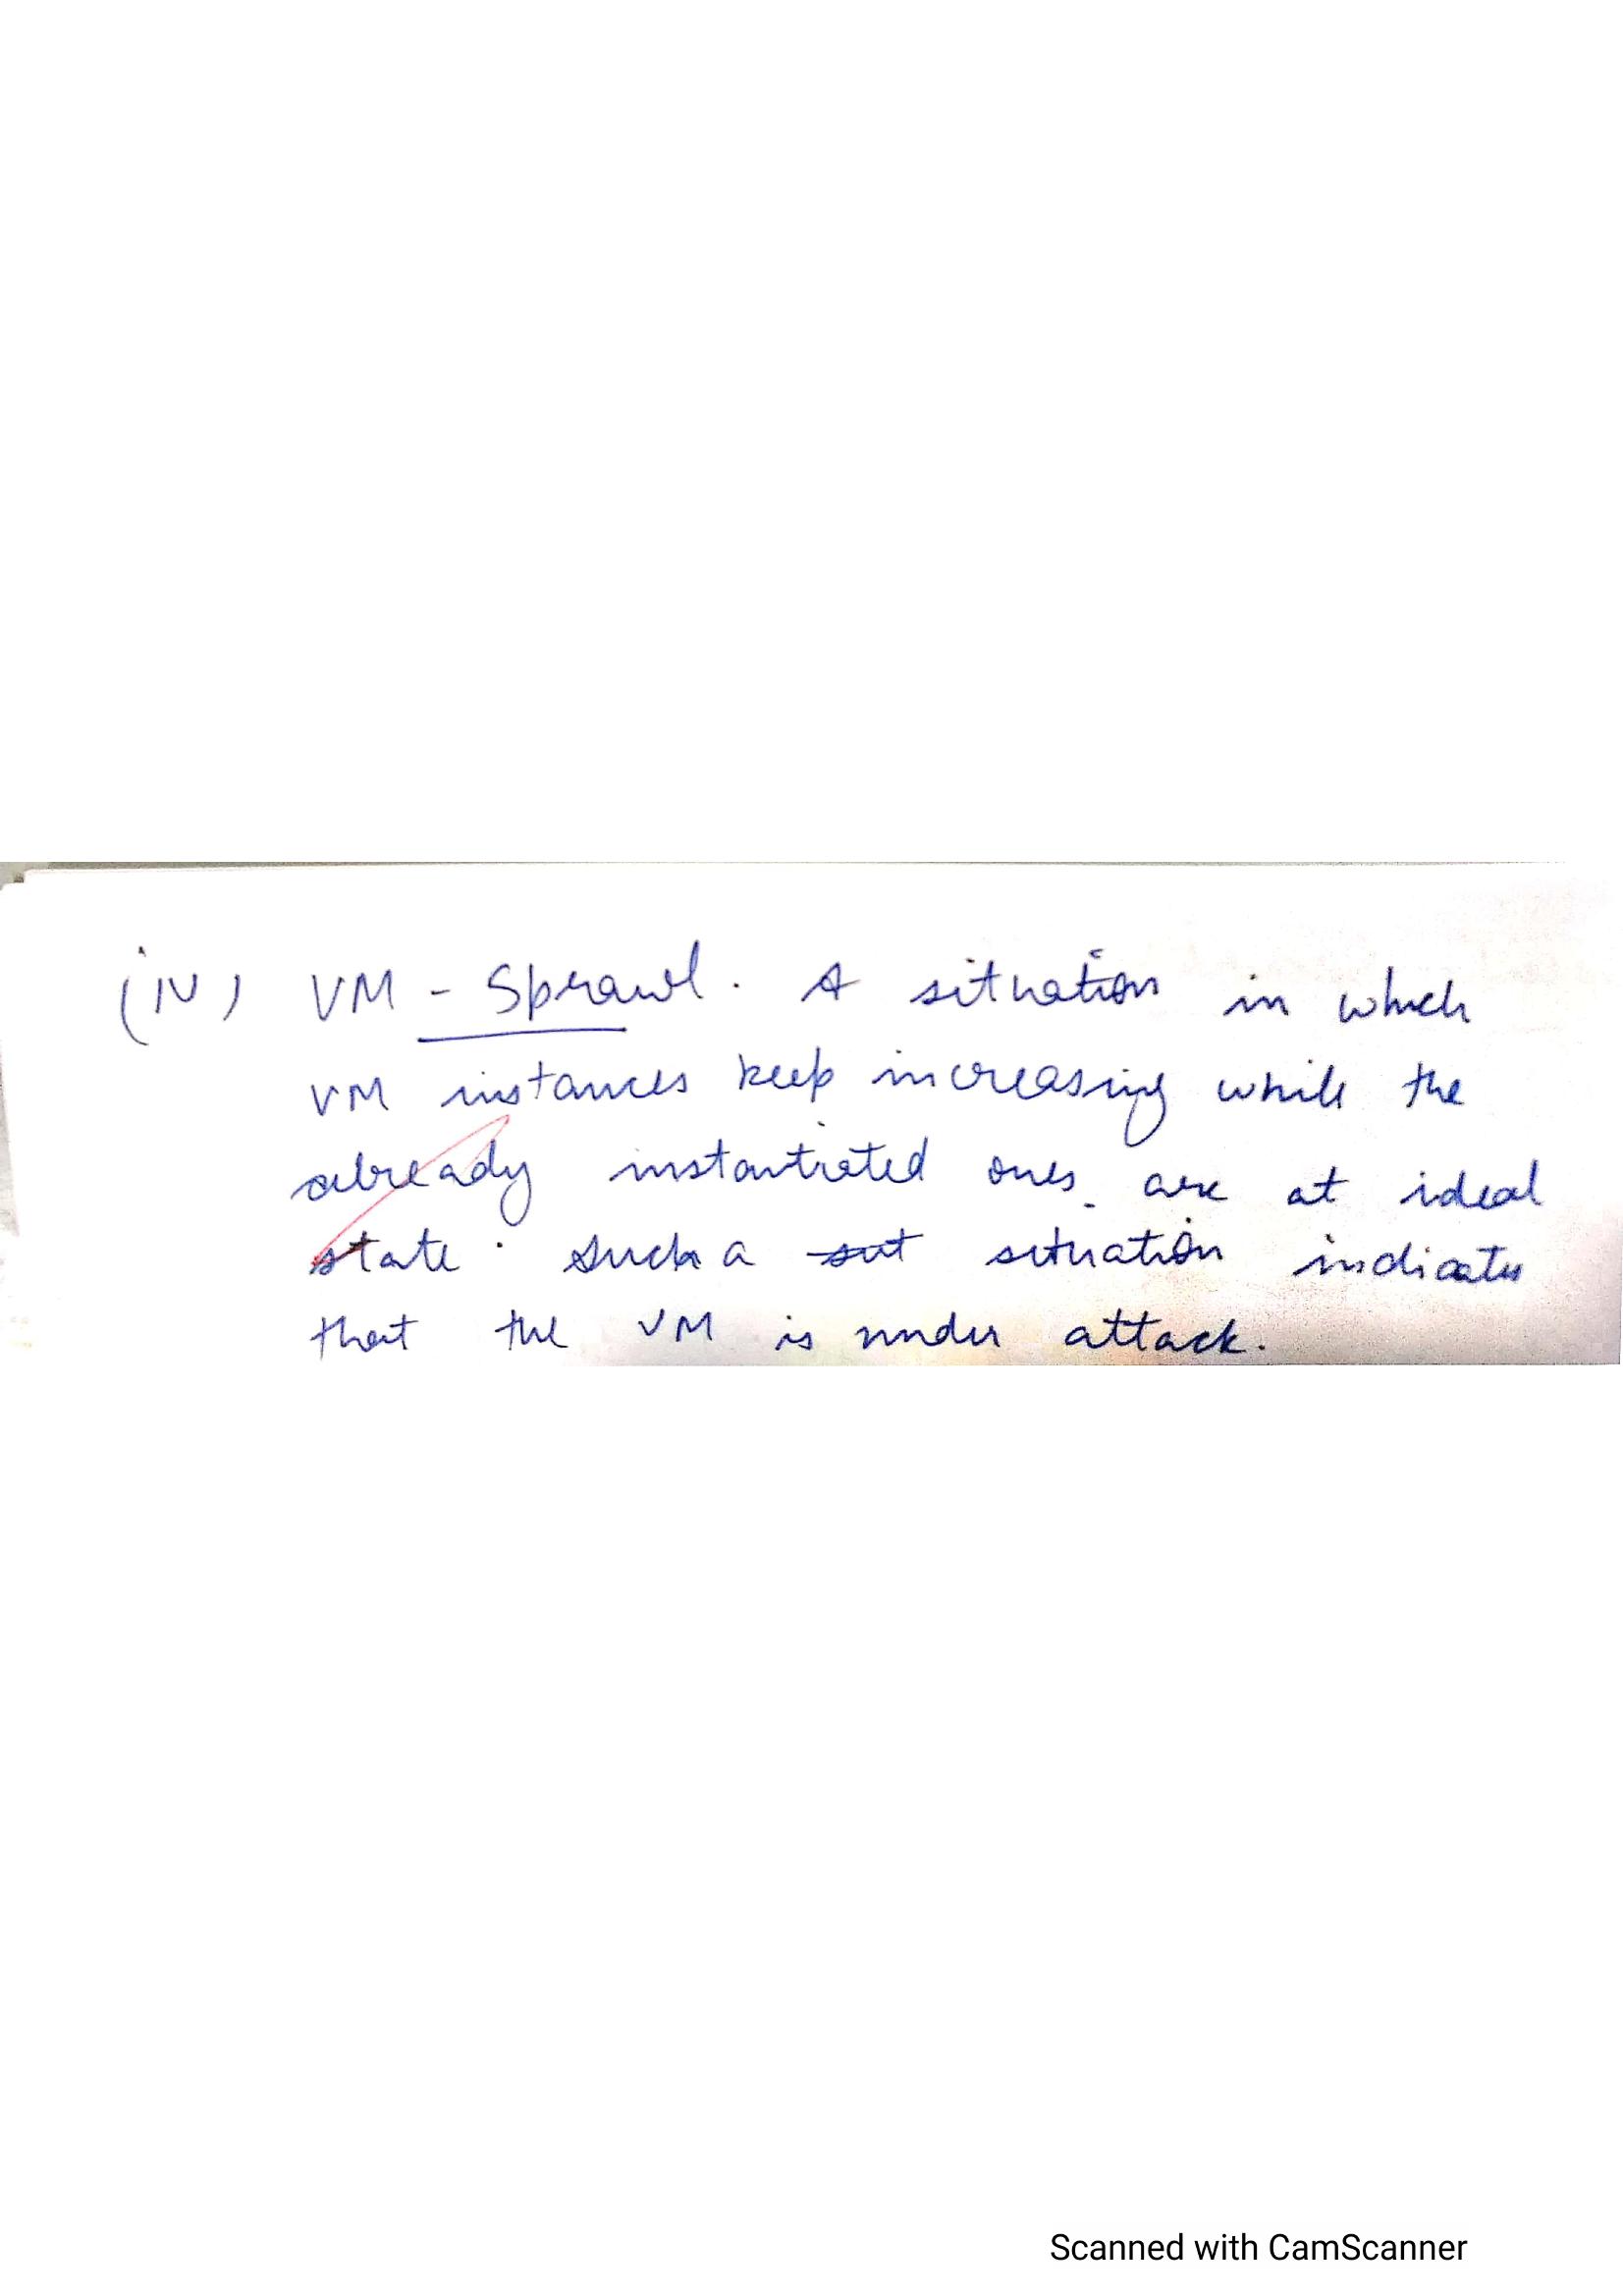 (iv) VM - Sprawl. A situation in which
VM instances keep increasing while the
already instantiated ones are at ideal
state. Such a sut situation indicates
that the VM is under attack.
Scanned with CamScanner